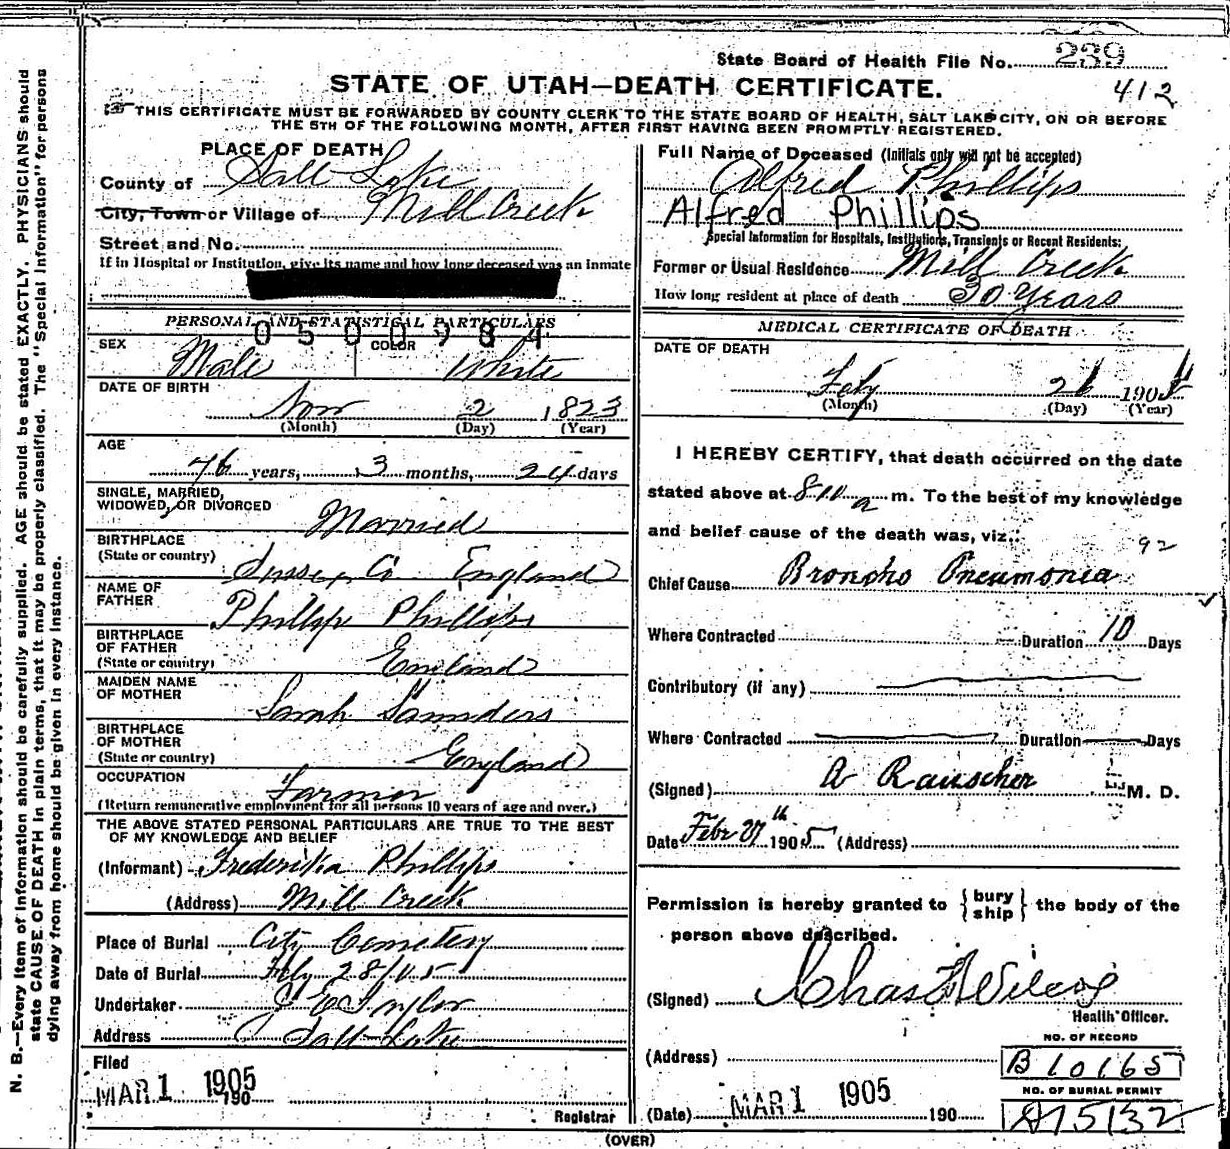 State Board of Health File No. 239
STATE OF UTAH—DEATH CERTIFICATE.
412
THIS CERTIFICATE MUST BE FORWARDED BY COUNTY CLERK TO THE STATE BOARD OF HEALTH, SALT LAKE CITY, ON OR BEFORE
THE 5TH OF THE FOLLOWING MONTH, AFTER FIRST HAVING BEEN PROMPTLY REGISTERED.
PLACE OF DEATH
County of Salt Lake
City, Town or Village of Mill Creek
Street and No.
If in Hospital or Institution, give its name and how long deceased was an inmate
PERSONAL AND STATISTICAL PARTICULARS
0500984
SEX Male COLOR White
DATE OF BIRTH
Nov 2 1823
(Month) (Day) (Year)
AGE
76 years, 3 months, 24 days
SINGLE, MARRIED,
WIDOWED, OR DIVORCED Married
BIRTHPLACE
(State or country) Sussex Co England
NAME OF
FATHER Phillip Phillips
BIRTHPLACE
OF FATHER
(State or country) England
MAIDEN NAME
OF MOTHER Sarah Saunders
BIRTHPLACE
OF MOTHER
(State or country) England
OCCUPATION Farmer
(Return remunerative employment for all persons 10 years of age and over.)
THE ABOVE STATED PERSONAL PARTICULARS ARE TRUE TO THE BEST
OF MY KNOWLEDGE AND BELIEF
(Informant) Frederika Phillips
(Address) Mill Creek
Place of Burial City Cemetery
Date of Burial Feby 28/05
Undertaker Taylor
Address Salt Lake
Filed
MAR 1 1905
190
Registrar
Full Name of Deceased (Initials only will not be accepted)
Alfred Phillips
Alfred Phillips
Special Information for Hospitals, Institutions, Transients or Recent Residents:
Former or Usual Residence Mill Creek
How long resident at place of death 30 Years
MEDICAL CERTIFICATE OF DEATH
DATE OF DEATH
Feby 26 190
(Month) (Day) (Year)
I HEREBY CERTIFY, that death occurred on the date
stated above at 8-10 a m. To the best of my knowledge
and belief cause of the death was, viz.:
92
Chief Cause Broncho Pneumonia
Where Contracted Duration 10 Days
Contributory (if any)
Where Contracted Duration Days
(Signed) A Rauscher M. D.
Date Febr 27th 1905 (Address)
Permission is hereby granted to {bury ship} the body of the
person above described.
(Signed) Chas F Wilcox
Health Officer.
(Address)
NO. OF RECORD
B 10165
NO. OF BURIAL PERMIT
A15132
(Date) MAR 1 1905 190
(OVER)
N. B.—Every item of information should be carefully supplied. AGE should be stated EXACTLY. PHYSICIANS should
state CAUSE OF DEATH in plain terms, that it may be properly classified. The "Special Information" for persons
dying away from home should be given in every instance.